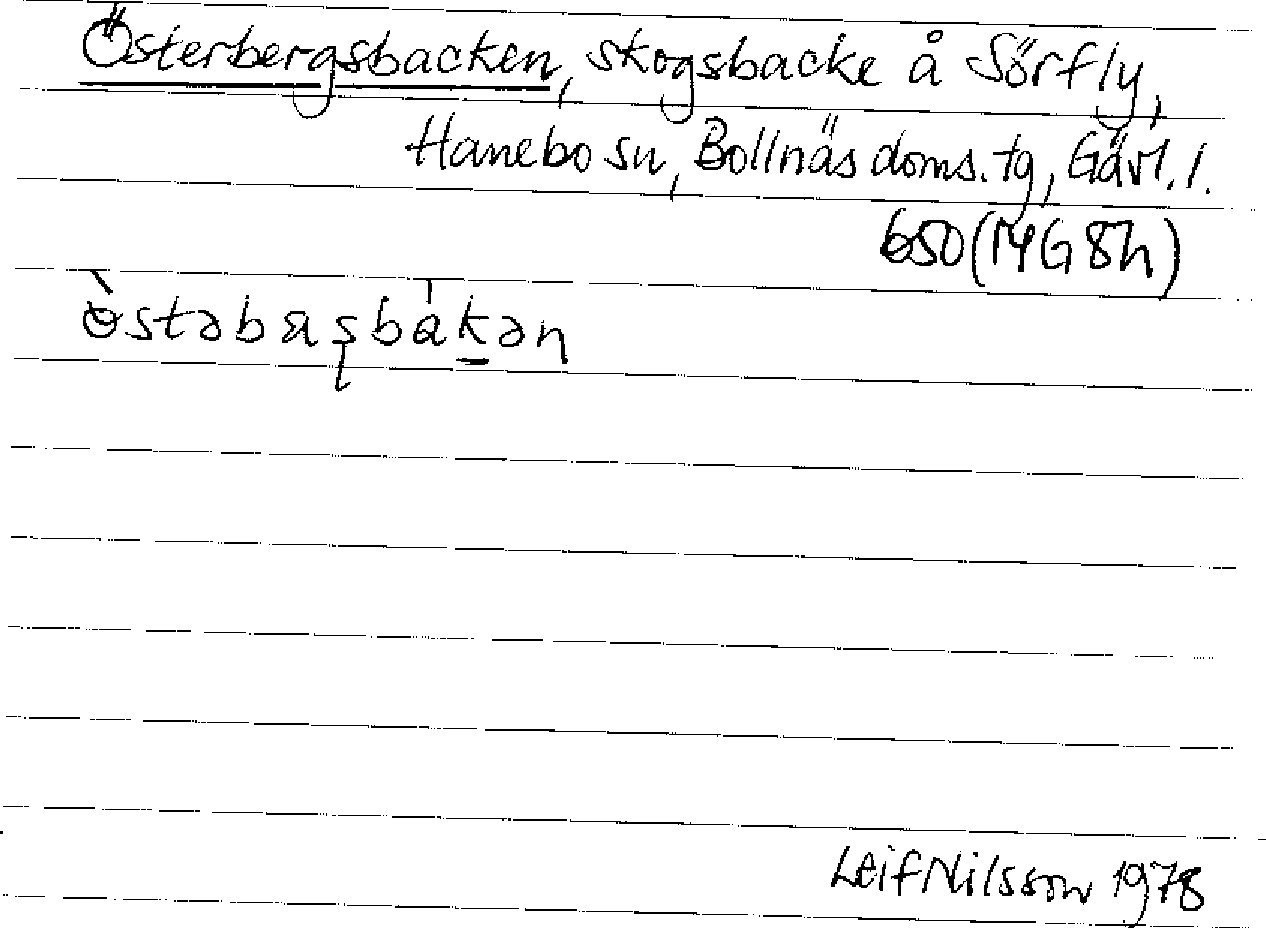 Österbergsbacken, skogsbacke å Sörfly,
Hanebo sn, Bollnäs doms.tg, Gävl.l.
650 (14G8h)
ɵ̀stəbaʂbàk̲ən
Leif Nilsson 1978